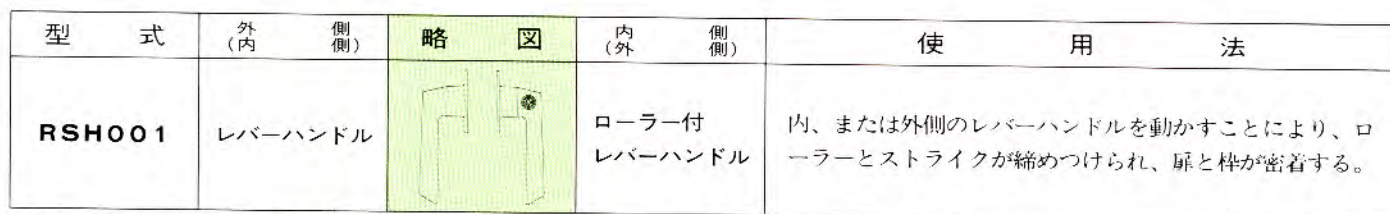 型式 外側(内側) 略図 内側(外側) 使用法
RSH001 レバーハンドル ローラー付レバーハンドル 内、または外側のレバーハンドルを動かすことにより、ロ
ーラーとストライクが締めつけられ、扉と枠が密着する。